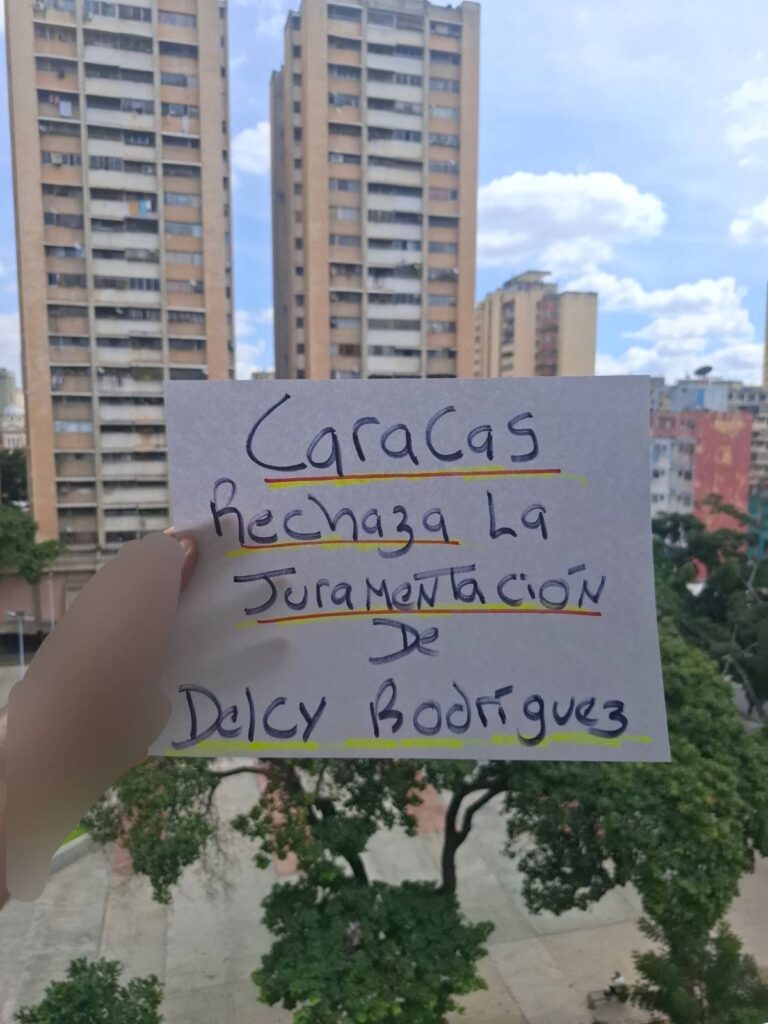 Caracas
Rechaza La
Juramentación
De
Delcy Rodríguez